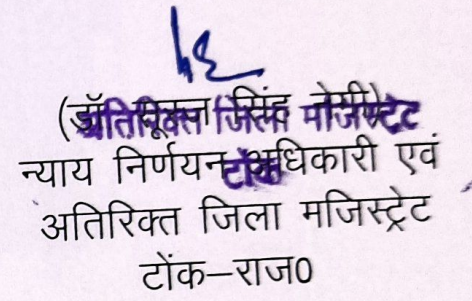 (डॉ सिंह
अतिरिक्त जिला मजिस्ट्रेट
टोंक
न्याय निर्णयन अधिकारी एवं
अतिरिक्त जिला मजिस्ट्रेट
टोंक–राज0